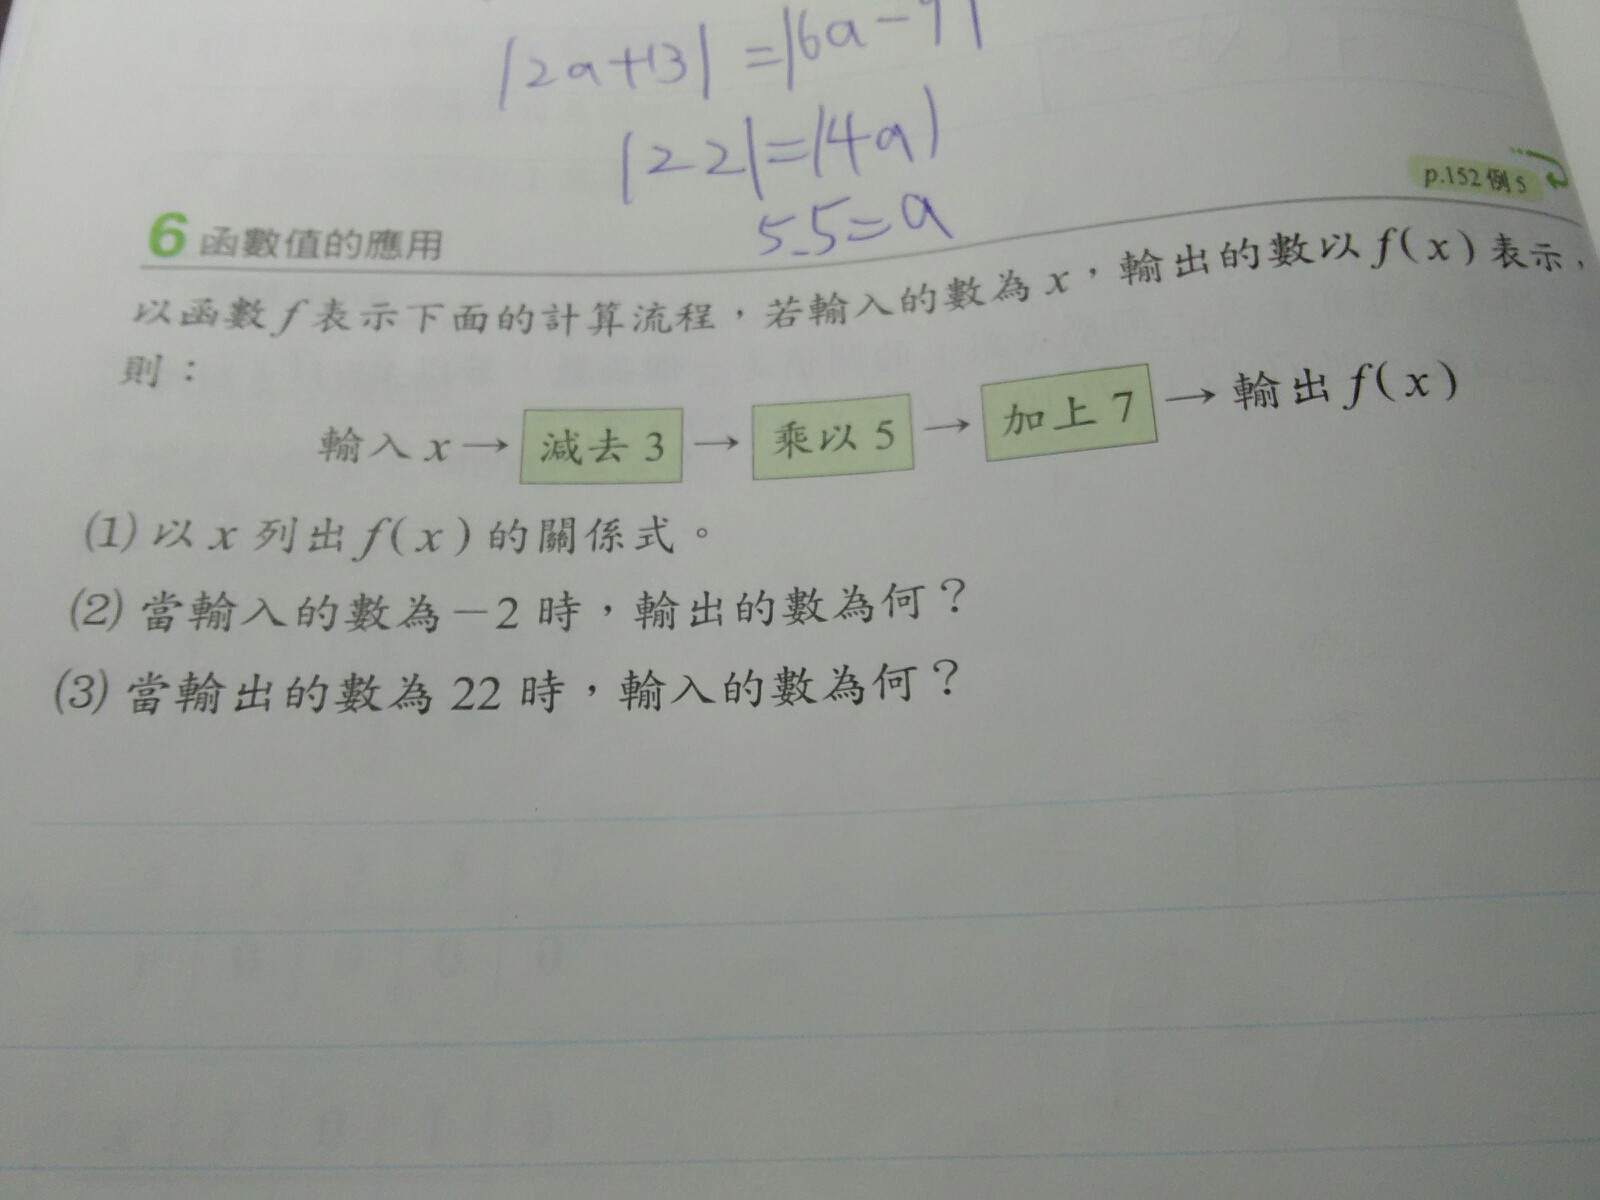 |2a+13| =|6a-9|
|22|=|4a|
5.5=a
p.152 例 5
6 函數值的應用
以函數 f 表示下面的計算流程，若輸入的數為 x，輸出的數以 f(x) 表示，
則：
輸入 x → 減去 3 → 乘以 5 → 加上 7 → 輸出 f(x)
(1) 以 x 列出 f(x) 的關係式。
(2) 當輸入的數為 -2 時，輸出的數為何？
(3) 當輸出的數為 22 時，輸入的數為何？